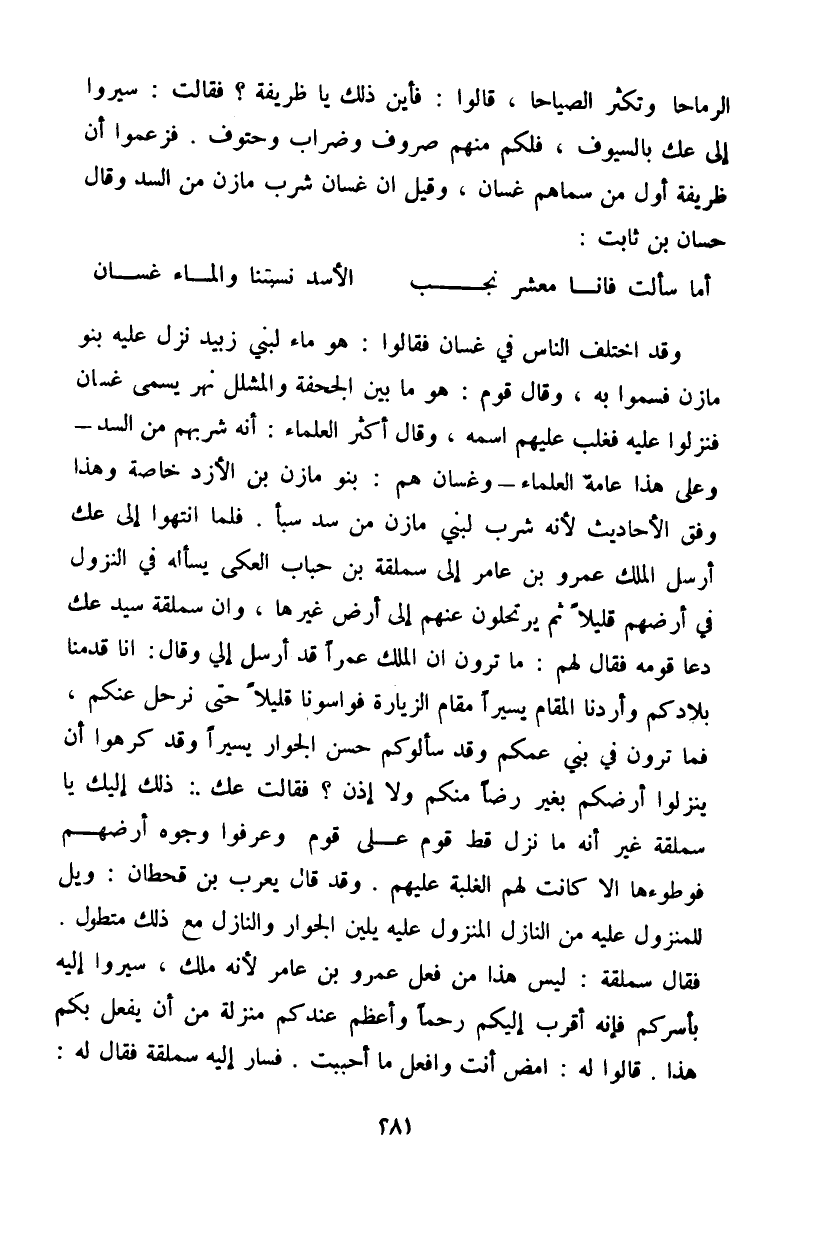 الرماحا وتكثر الصياحا ، قالوا : فأين ذلك يا ظريفة ؟ فقالت : سيروا
إلى عك بالسيوف ، فلكم منهم صروف وضراب وحتوف . فزعموا أن
ظريفة أول من سماهم غسان ، وقيل ان غسان شرب مازن من السد وقال
حسان بن ثابت :
أما سألت فانـــا معشر نجـــــب الأسد نسبتنا والمـــاء غســـان
وقد اختلف الناس في غسان فقالوا : هو ماء لبني زبيد نزل عليه بنو
مازن فسموا به ، وقال قوم : هو ما بين الجحفة والمشلل نهر يسمى غسان
فنزلوا عليه فغلب عليهم اسمه ، وقال أكثر العلماء : أنه شربهم من السد ــ
وعلى هذا عامة العلماء ــ وغسان هم : بنو مازن بن الأزد خاصة وهذا
وفق الأحاديث لأنه شرب لبني مازن من سد سبأ . فلما انتهوا إلى عك
أرسل الملك عمرو بن عامر إلى سملقة بن حباب العكى يسأله في النزول
في أرضهم قليلاً ثم يرتحلون عنهم إلى أرض غيرها ، وان سملقة سيد عك
دعا قومه فقال لهم : ما ترون ان الملك عمراً قد أرسل إلي وقال : انا قدمنا
بلادكم وأردنا المقام يسيراً مقام الزيارة فواسونا قليلاً حتى نرحل عنكم ،
فما ترون في بني عمكم وقد سألوكم حسن الجوار يسيراً وقد كرهوا أن
ينزلوا أرضكم بغير رضاً منكم ولا إذن ؟ فقالت عك .: ذلك إليك يا
سملقة غير أنه ما نزل قط قوم عـــلى قوم وعرفوا وجوه أرضهـــم
فوطوءها الا كانت لهم الغلبة عليهم . وقد قال يعرب بن قحطان : ويل
للمنزول عليه من النازل المنزول عليه يلين الجوار والنازل مع ذلك متطول .
فقال سملقة : ليس هذا من فعل عمرو بن عامر لأنه ملك ، سيروا إليه
بأسركم فإنه أقرب إليكم رحماً وأعظم عندكم منزلة من أن يفعل بكم
هذا . قالوا له : امض أنت وافعل ما أحببت . فسار إليه سملقة فقال له :
٢٨١